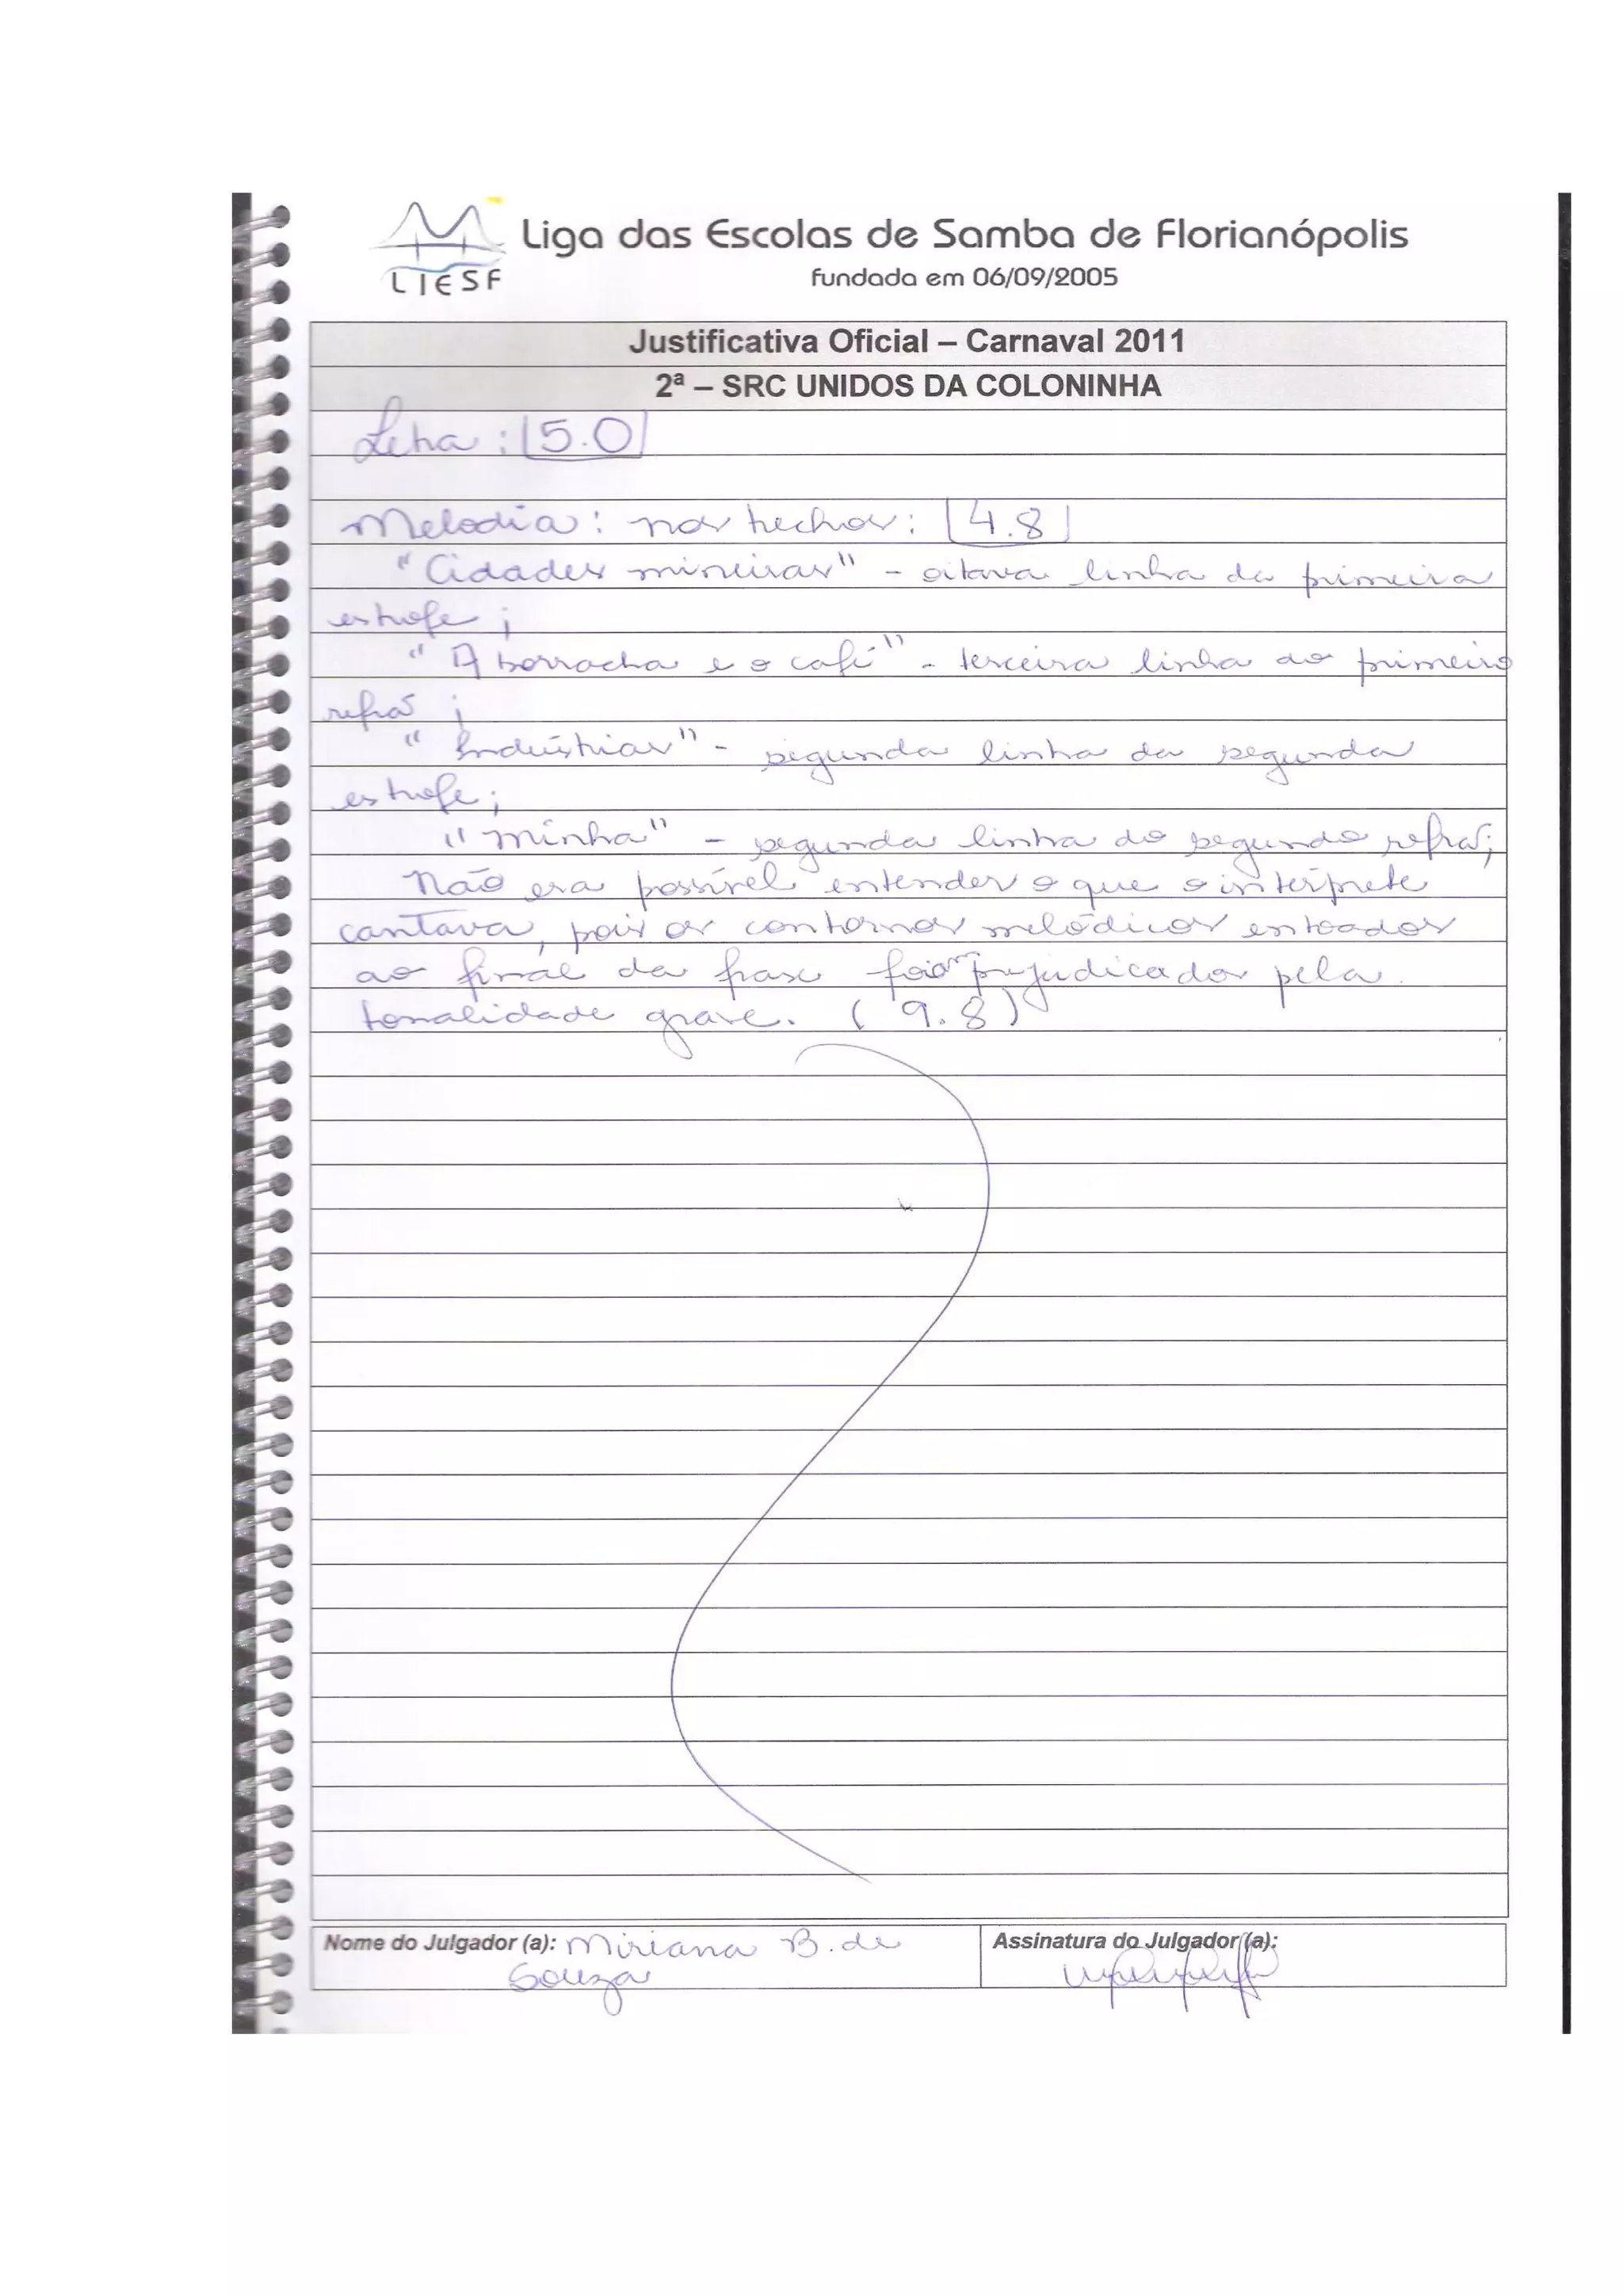 Liga das Escolas de Samba de Florianópolis
LIESF
fundada em 06/09/2005
Justificativa Oficial – Carnaval 2011
2ª – SRC UNIDOS DA COLONINHA
Letra: 5.0
Melodia: nos trechos: 4.8
"Cidades mineiras" - oitava linha da primeira
estrofe;
"A borracha e o café" - terceira linha do primeiro
refrão;
"Indústrias" - segunda linha da segunda
estrofe;
"minha" - segunda linha do segundo refrão;
Não era possível entender o que o intérprete
cantava, pois os contornos melódicos entoados
ao final da frase foram prejudicados pela
tonalidade grave. (9.8)
Nome do Julgador (a): Miriana B. de
Souza
Assinatura do Julgador (a):